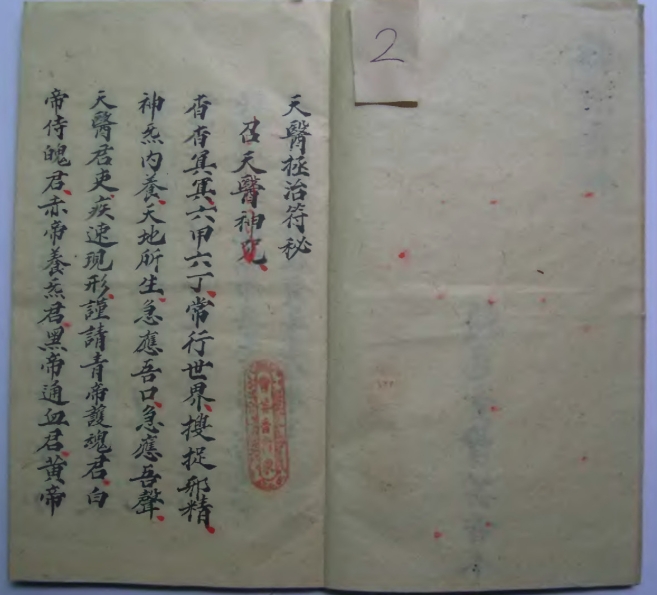 2
天醫極治符秘
召天醫神咒
杳杳冥冥六甲六丁常行世界搜捉邪精
神炁内養天地所生急應吾口急應吾聲
天醫君吏疾速現形謹請青帝護魂君白
帝侍魄君赤帝養炁君黑帝通血君黄帝